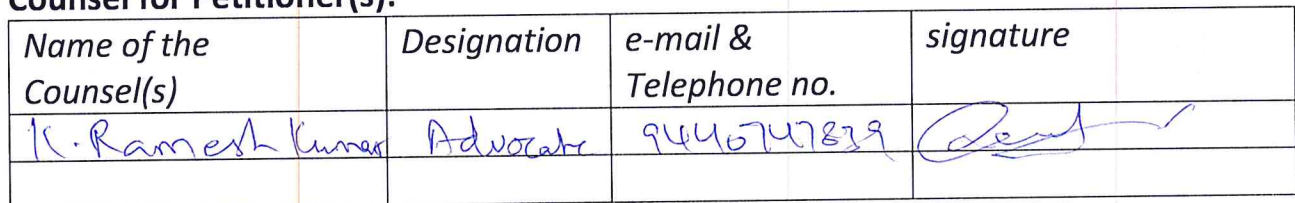 Counsel for Petitioner(s):
Name of the Counsel(s) Designation e-mail & Telephone no. signature
K. Ramesh Kumar Advocate 9440747839